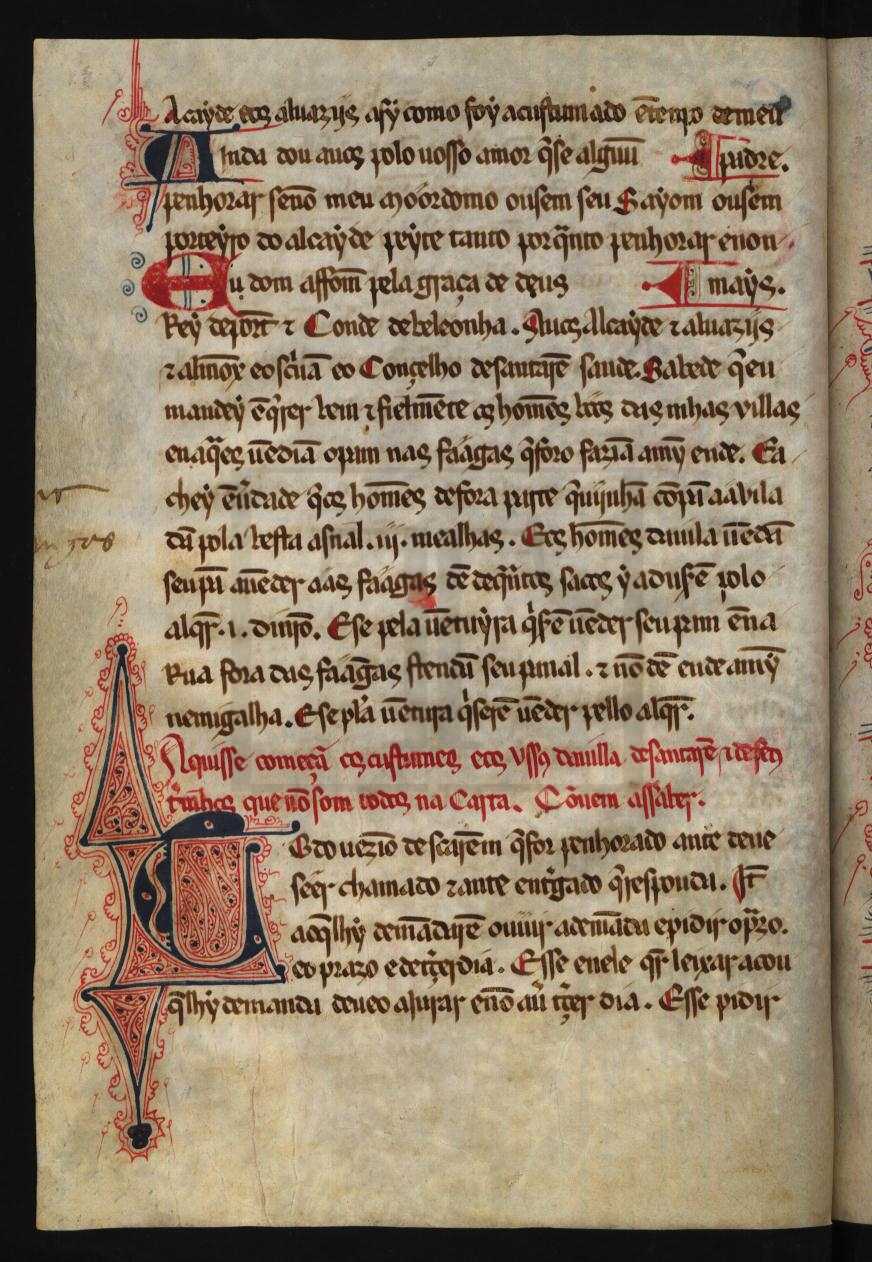 Alcayde eos aluazijs assy como foy acustumado ẽtempo demeu
Ainda dou auos polo uosso amor q̃se alguũ padre.
penhorar senõ meu moordomo ousem seu Sayom ousem
porteyro do alcayde peyte tanto por q̃nto penhorar enon
Eu dom affom̃ pela graça de deus mays.
Rey deport̃ ⁊ Conde debeleonha. Auos Alcayde ⁊ aluazijs
⁊ almox̃ eoscⁱuã eo Conçelho desantarẽ saude. Sabede q̃ eu
mandey ẽq̃rer bem ⁊ fielmẽte os homẽs bõos das mhas villas
enaq̃es uẽdiã opam nas faãgas q̃foro faziã amỹ ende. Ea
chey ẽũdade q̃os homẽs defora parte q̃uijnhã cõpã aavila
dã pola besta asnal .iij. mealhas. Eos homẽs dauila uẽdã
seu pã auẽder aas faãgas dẽ deq̃tro sacos
alqr̃ .i. dinrõ. Ese pela uẽtuyra q̃sẽ uẽder seu pam ẽna
Rua fora das faãgas stendã seu panal. ⁊ nõ dẽ ende amỹ
nemigalha. Ese pla uẽtura q̃serẽ uẽder pello alqr̃.
Aquisse começã os custumes eos vssos dauilla desantarẽ ⁊ deseos
t̃minhos que nõ som todos na Carta. Cõuem assaber.
Custume he
do uezĩo de scarem q̃ for penhorado ante deue
seer chamado ⁊ ante entⁱgado q̃ responda. Jt̃
aoq̃lhy demãdarẽ ouuir ademãda epidir oprazo.
eo prazo e deterçer dia. Esse enele q̃r leixar aoou
q̃lhy demanda deueo ajurar enõ aũ terçer dia. Esse pidir